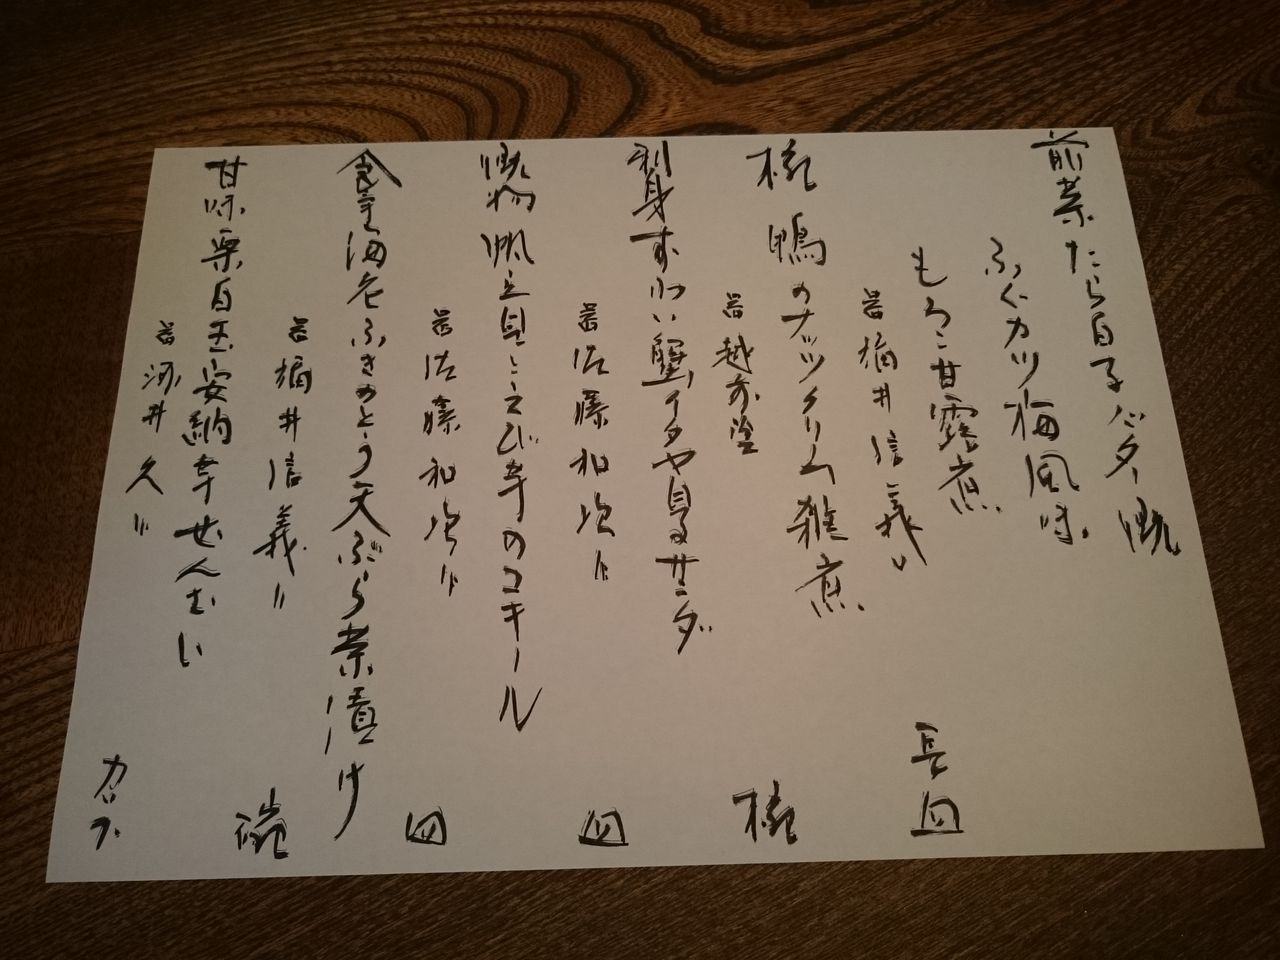 前菜 たら白子バター焼
ふぐカツ梅風味
もろこ甘露煮
器 楠井信義〃 長皿
椀 鴨のナッツクリーム雑煮
器 越前塗 椀
刺身 ずわい蟹イタヤ貝るサラダ
器 佐藤和次〃 皿
焼物 帆立貝とえび芋のコキール
器 佐藤和次〃 皿
食事 海老ふきのとう天ぷら茶漬け
器 楠井信義〃 碗
甘味 栗白玉安納芋ぜんざい
器 河井久〃 カップ